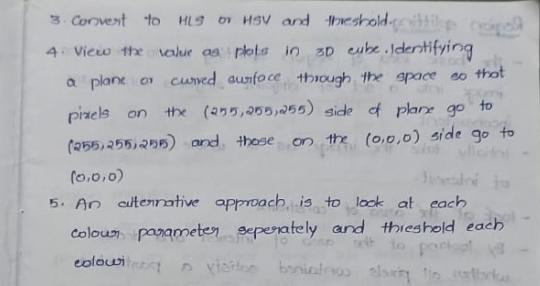 3. Convert to HLS or HSV and threshold.
4. View the value as plots in 3D cube. Identifying
a plane or curved surface through the space so that
pixels on the (255,255,255) side of plane go to
(255,255,255) and those on the (0,0,0) side go to
(0,0,0)
5. An alternative approach is to look at each
colour parameter seperately and threshold each
colour